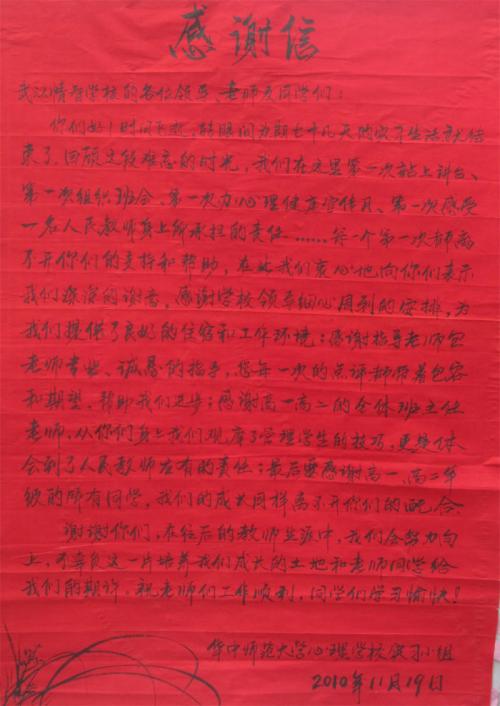 感谢信
武汉情智学校的各位领导、老师及同学们：
你们好！时间飞逝，转眼间为期七十几天的实习生活就结
束了，回顾这段难忘的时光，我们在这里第一次站上讲台、
第一次组织班会、第一次办心理健康宣传月、第一次感受
一名人民教师身上所承担的责任……每一个第一次都离
不开你们的支持和帮助，在此我们衷心地向你们表示
我们深深的谢意，感谢学校领导细心周到的安排，为
我们提供了良好的住宿和工作环境；感谢指导老师
老师专业、诚恳的指导，您每一次的点评都带着包容
和期望，帮助我们进步；感谢高一高二的全体班主任
老师，从你们身上我们观摩了管理学生的技巧，更是体
会到了人民教师应有的责任；最后要感谢高一、高二年
级的所有同学，我们的成长同样离不开你们的配合。
谢谢你们，在往后的教师生涯中，我们会努力向
上，不辜负这一片培养我们成长的土地和老师同学给
我们的期许，祝老师们工作顺利，同学们学习愉快！
华中师范大学心理学校实习小组
2010年11月19日